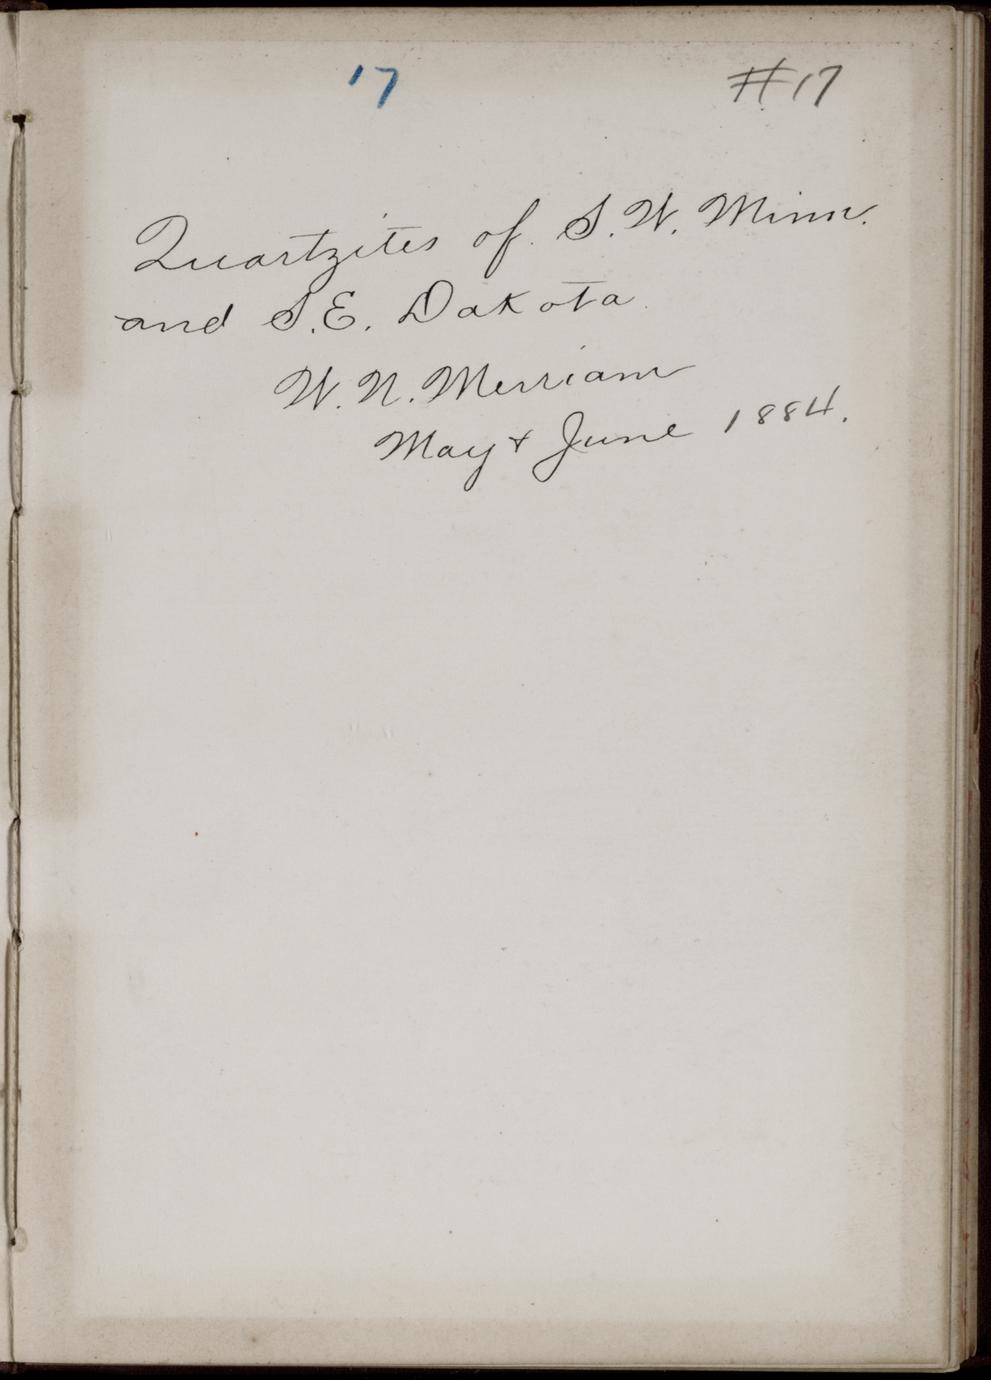 17 #17
Quartzites of S.W. Minn.
and S.E. Dakota
W. N. Merriam
May & June 1884.